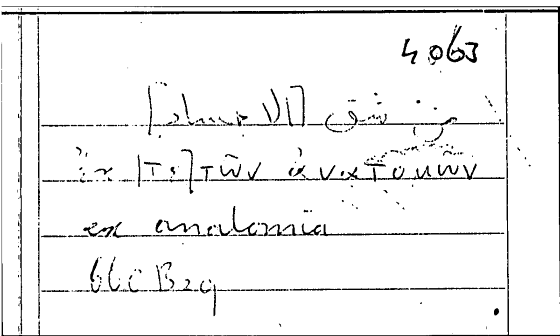 4063
من شق [الاجساد]
ἐκ [τε] τῶν ἀνατομῶν
ex anatomia
66C B29